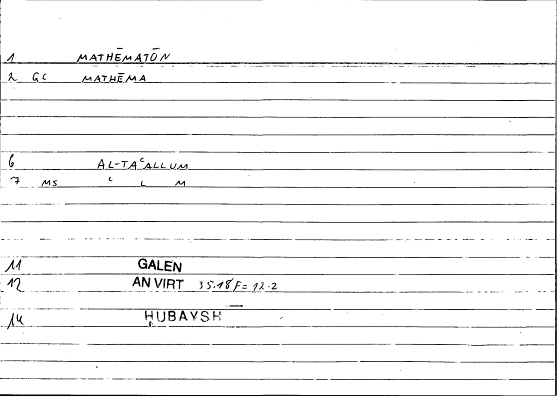 1 MATHĒMATŌN
2 GC MATHĒMA
6 AL-TAʿALLUM
7 MS ʿ L M
11 GALEN
12 AN VIRT 35.18 F = 12.2
14 ḤUBAYSH